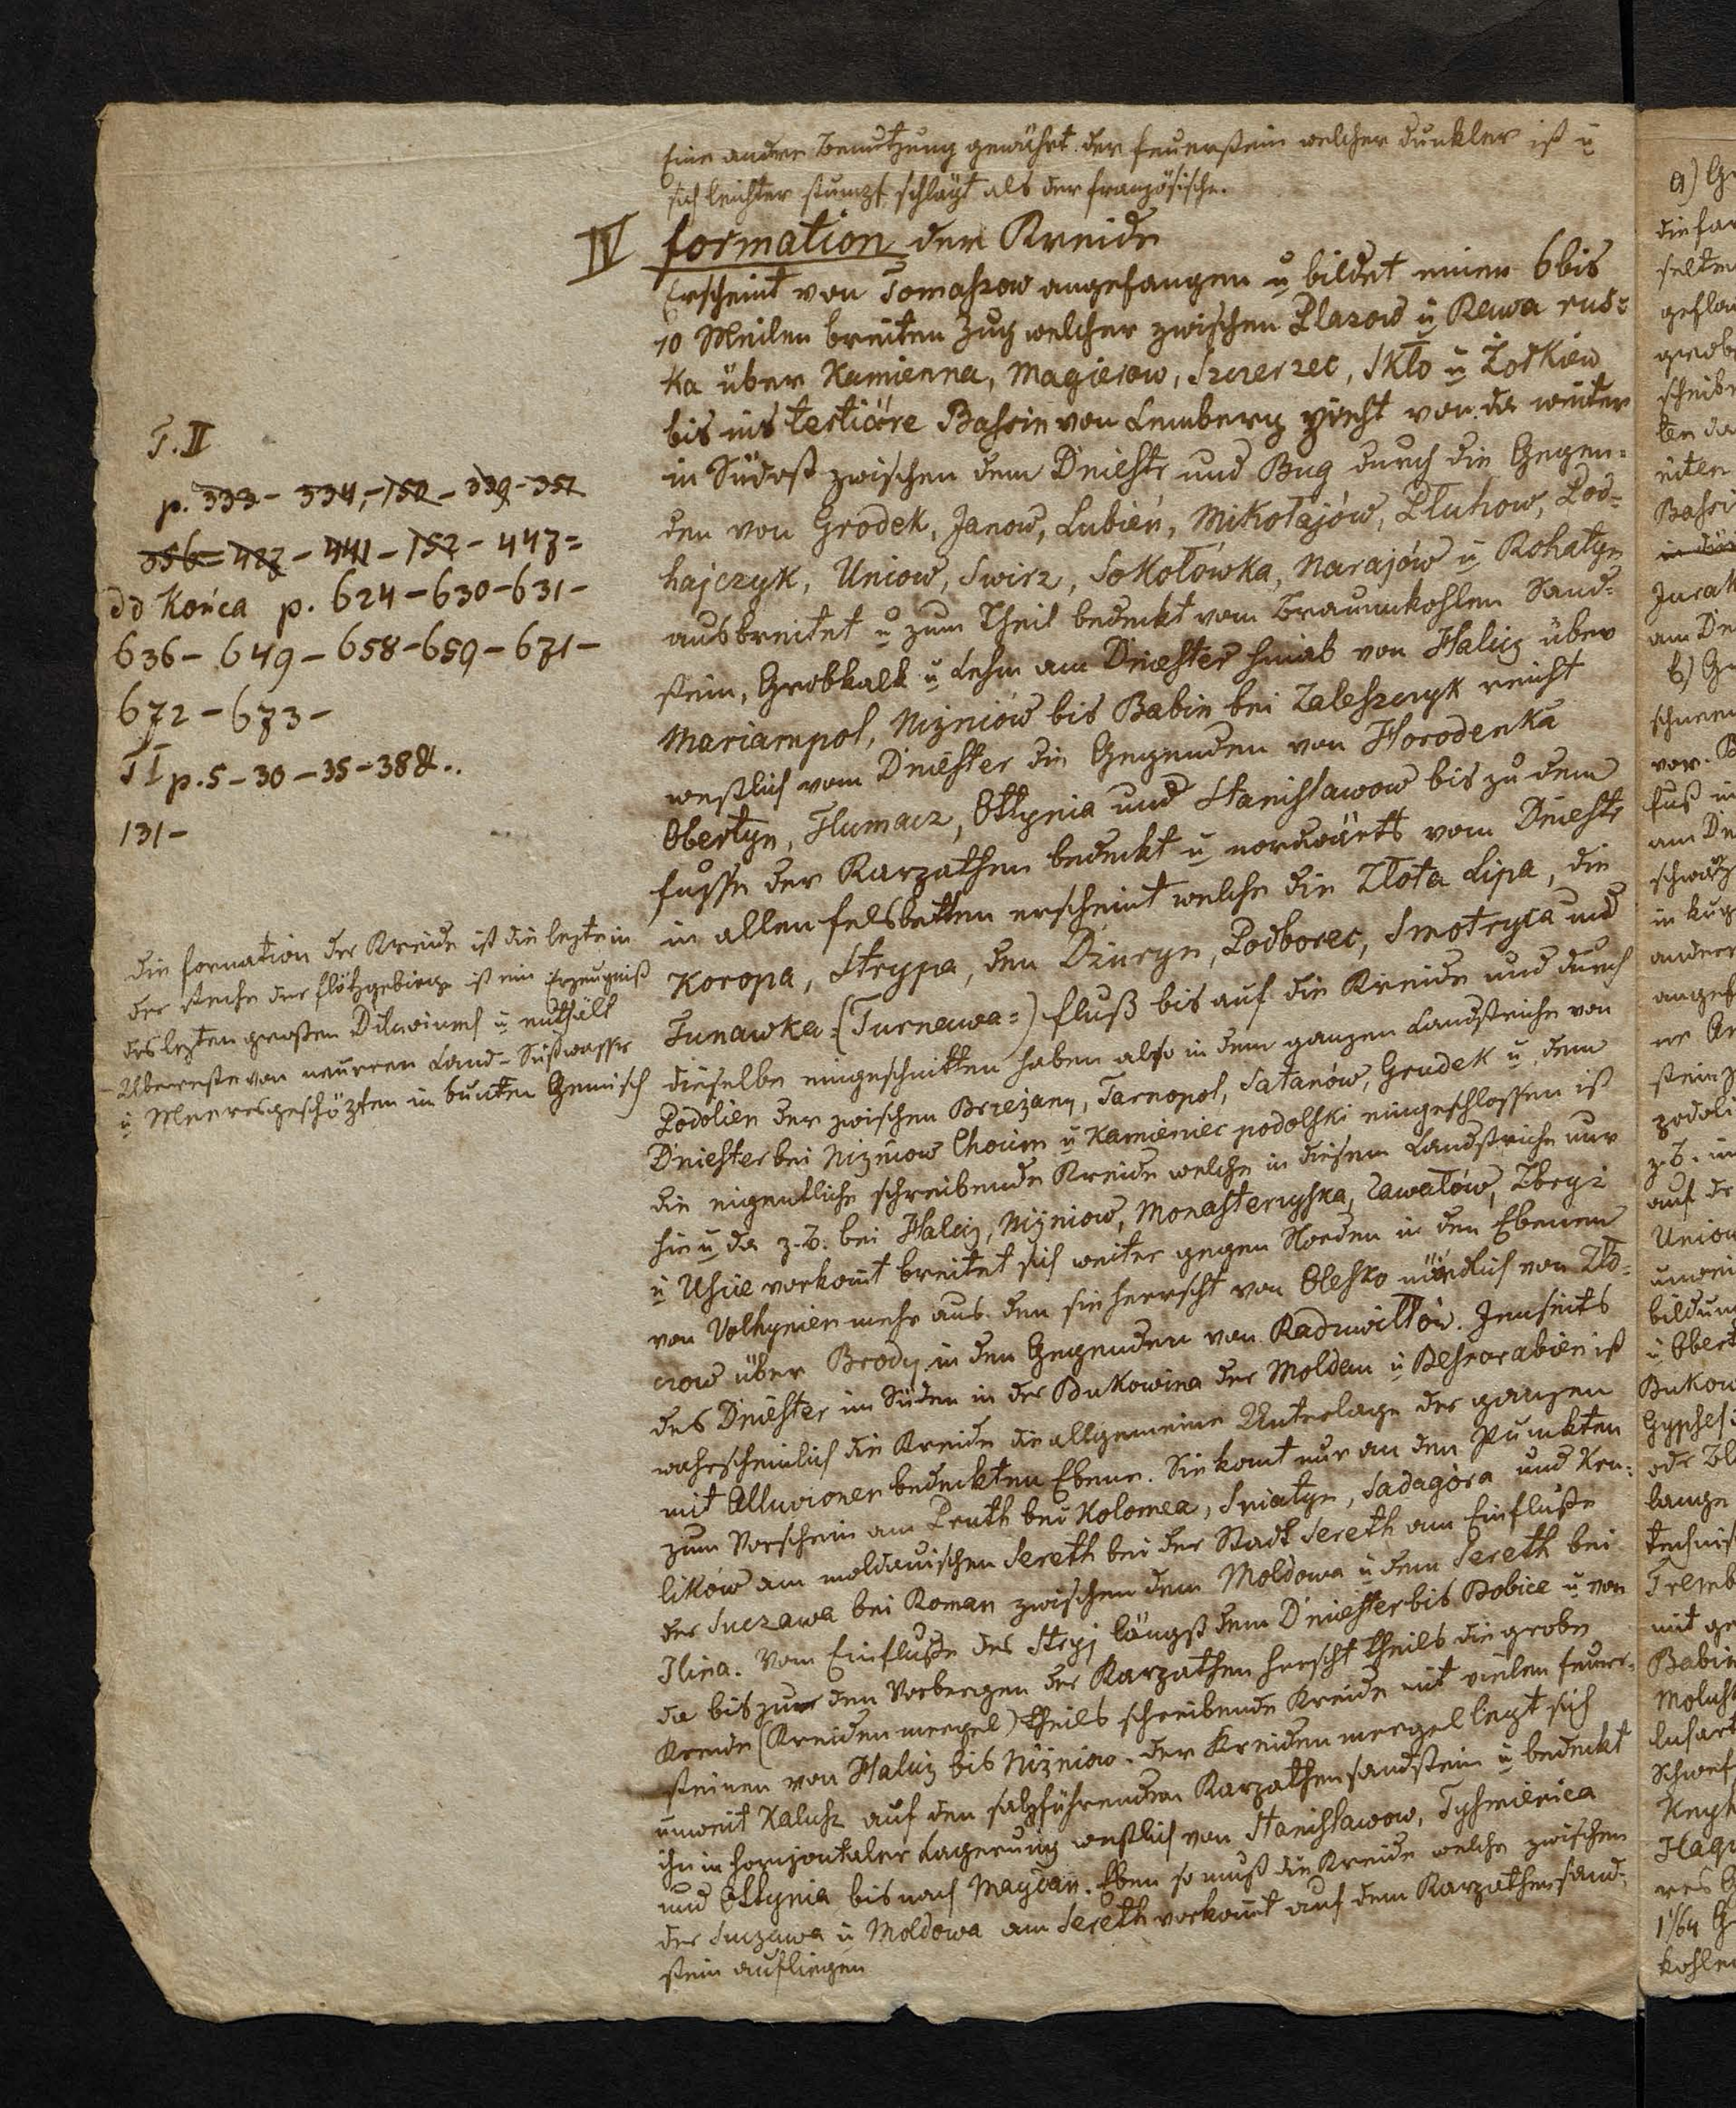 Eine andre Benutzung gewährt der Feuerstein welcher dunkler ist u
sich leichter stumpf schlägt als der französische.
IV formation der Kreide
Erscheint von Tomaszow angefangen u bildet einen 6 bis
10 Meilen breiten Zug welcher zwischen Plazow u Rawa rus=
ka über Kamienna, Magierow, Szczerzec, Skło u Żołkiew
bis ins tertiäre Bassin von Lemberg zieht von da weiter
in Südost zwischen dem Dniestr und Bug durch die Gegen=
den von Grodek, Janow, Lubień, Mikołajów, Pluhow, Pod=
hajczyk, Uniow, Swirz, Sokołówka, Narajów u Rohatyn
ausbreitet u zum Theil bedeckt vom Braunkohlen Sand=
stein, Grobkalk u Lehm am Dniester hinab von Halicz über
Mariampol, Niżniów bis Babin bei Zaleszczyk reicht
westlich vom Dniester die Gegenden von Horodenka
Obertyn, Tlumacz, Ottynia und Stanisławow bis zu dem
Fusse der Karpathen bedeckt u nordwärts vom Dniestr
in allen Felsbetten erscheint welche die Złota Lipa, die
Koropa, Strypa, den Dżuryn, Podborec, Smotryca und
Tunawka= (Turnawa=) fluß bis auf die Kreide und durch
dieselbe eingeschnitten haben also in dem ganzen Landstriche von
Podolien der zwischen Brzeżany, Tarnopol, Satanów, Grudek u dem
Dniester bei Niżniow Chocim u Kamieniec podolski eingeschlossen ist
die eigentliche schreibende Kreide welche in diesem Landstriche nur
hie u da z. B. bei Halicz, Niżniow, Monasterzyska, Zawałów, Zbryż
u Uście vorkommt breitet sich weiter gegen Norden in den Ebenen
von Volhynien mehr aus. den sie herrscht von Olesko nördlich von Zło=
czow über Brody in den Gegenden von Radziwiłłów. Jenseits
des Dniester im Süden in der Bukowina der Moldau u Bessarabien ist
wahrscheinlich die Kreide die allgemeine Unterlage der ganzen
mit Alluvionen bedeckten Ebene. Sie komt nur an den Punkten
zum Vorschein am Pruth bei Kolomea, Sniatyn, Sadagóra und Kru=
likow am moldauischen Sereth bei der Stadt Sereth am Einfluße
der Suczawa bei Roman zwischen dem Moldowa u dem Sereth bei
Ilina. Vom Einfluße des Stryj längst dem Dniester bis Bobice u von
da bis zu den Vorbergen der Karpathen herscht theils die grobe
Kreide (Kreidenmergel) theils schreibende Kreide mit vielen Feuer=
steinen von Halicz bis Niżniow. der Kreidenmergel legt sich
unweit Kalusz auf den salzführenden Karpathensandstein u bedeckt
ihn in horizontaler Lagerung westlich von Stanisławow, Tyśmienica
und Ottynia bis nach Maydan. Eben so muß die Kreide welche zwischen
der Suczawa u Moldowa am Sereth vorkommt auf dem Karpathensand=
stein aufliegen
T. II
p. 333 - 334, - 150 - 339 - 351
356 = 427 - 441 - 152 - 447 =
do końca p. 624 - 630 - 631 -
636 - 649 - 658 - 659 - 671 -
672 - 673 -
T I p. 5 - 30 - 35 - 38 &..
131 -
die formation der Kreide ist die lezte in
der Reihe der Flötzgebirge ist ein Erzeugniß
des lezten großen Diluviums u enthält
Überreste von neueren Land - Süßwasser
u Meeresgeschöpfen in bunten Gemisch